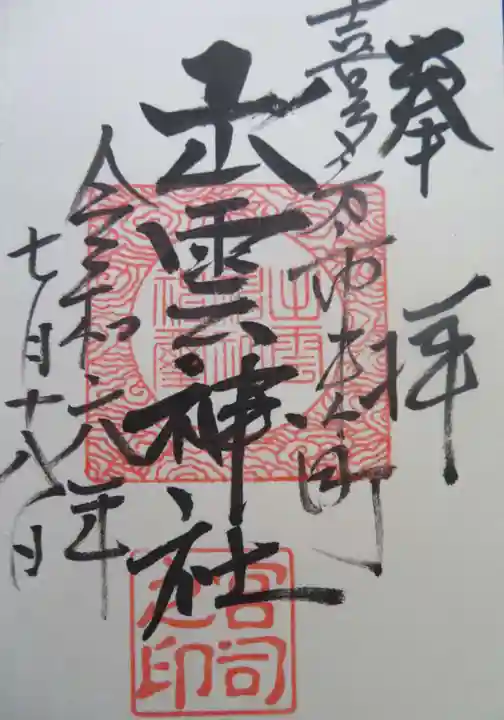 奉拝
喜多方市 町
出雲神社
令和六年
七月十八日
宮司
之印